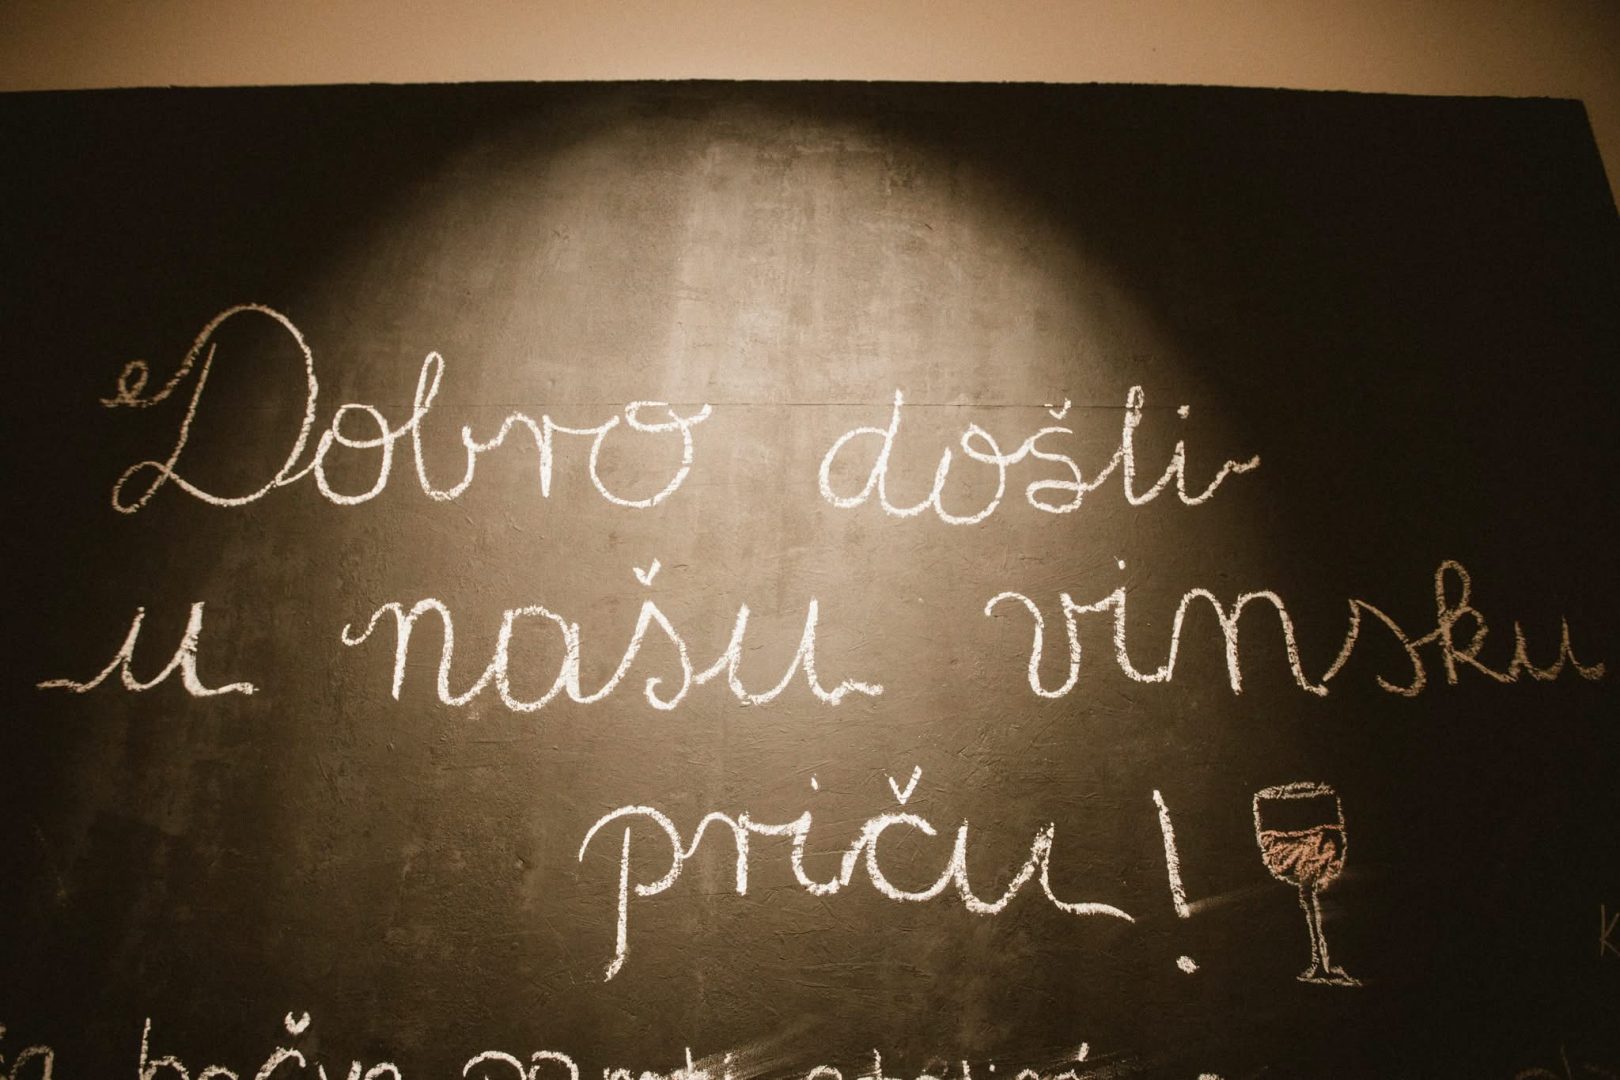 Dobro došli
u našu vinsku
priču!